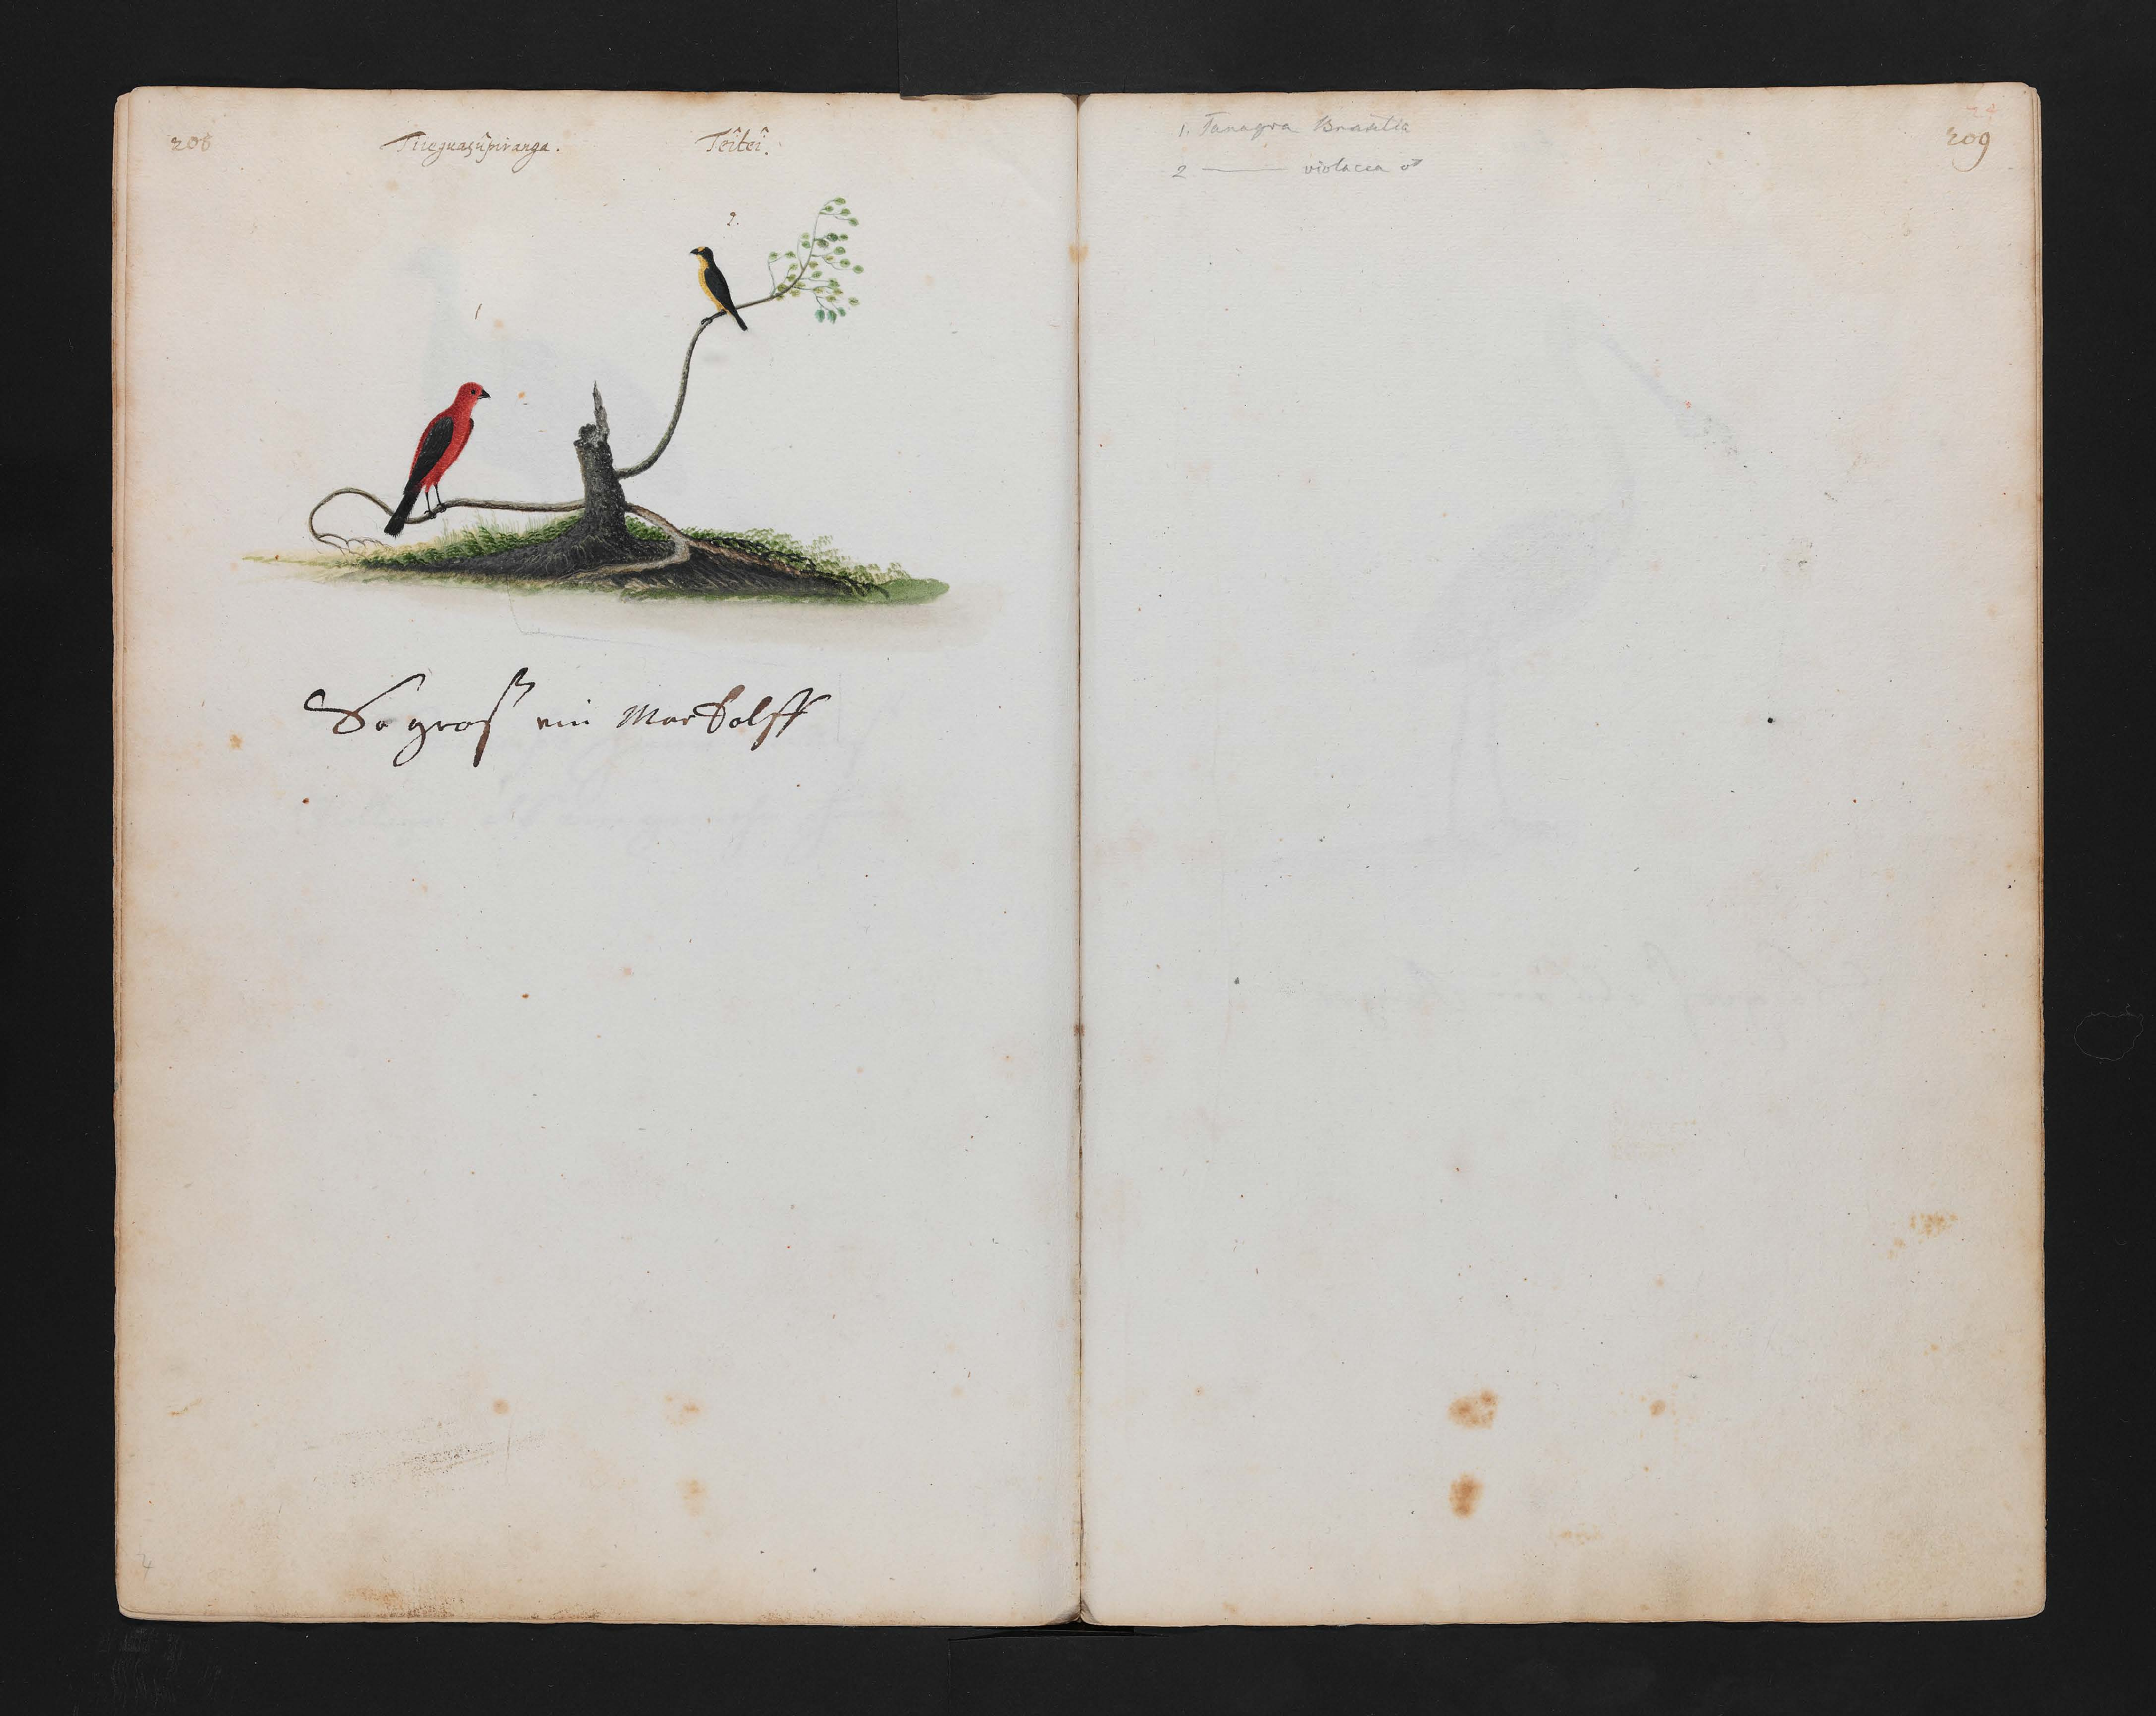 208
Tiieguaçûpiranga.
Teîteî.
1
2.
So groß ein Markolff
1. Tanagra Brasilia
2 ——— violacea ♂
24
209